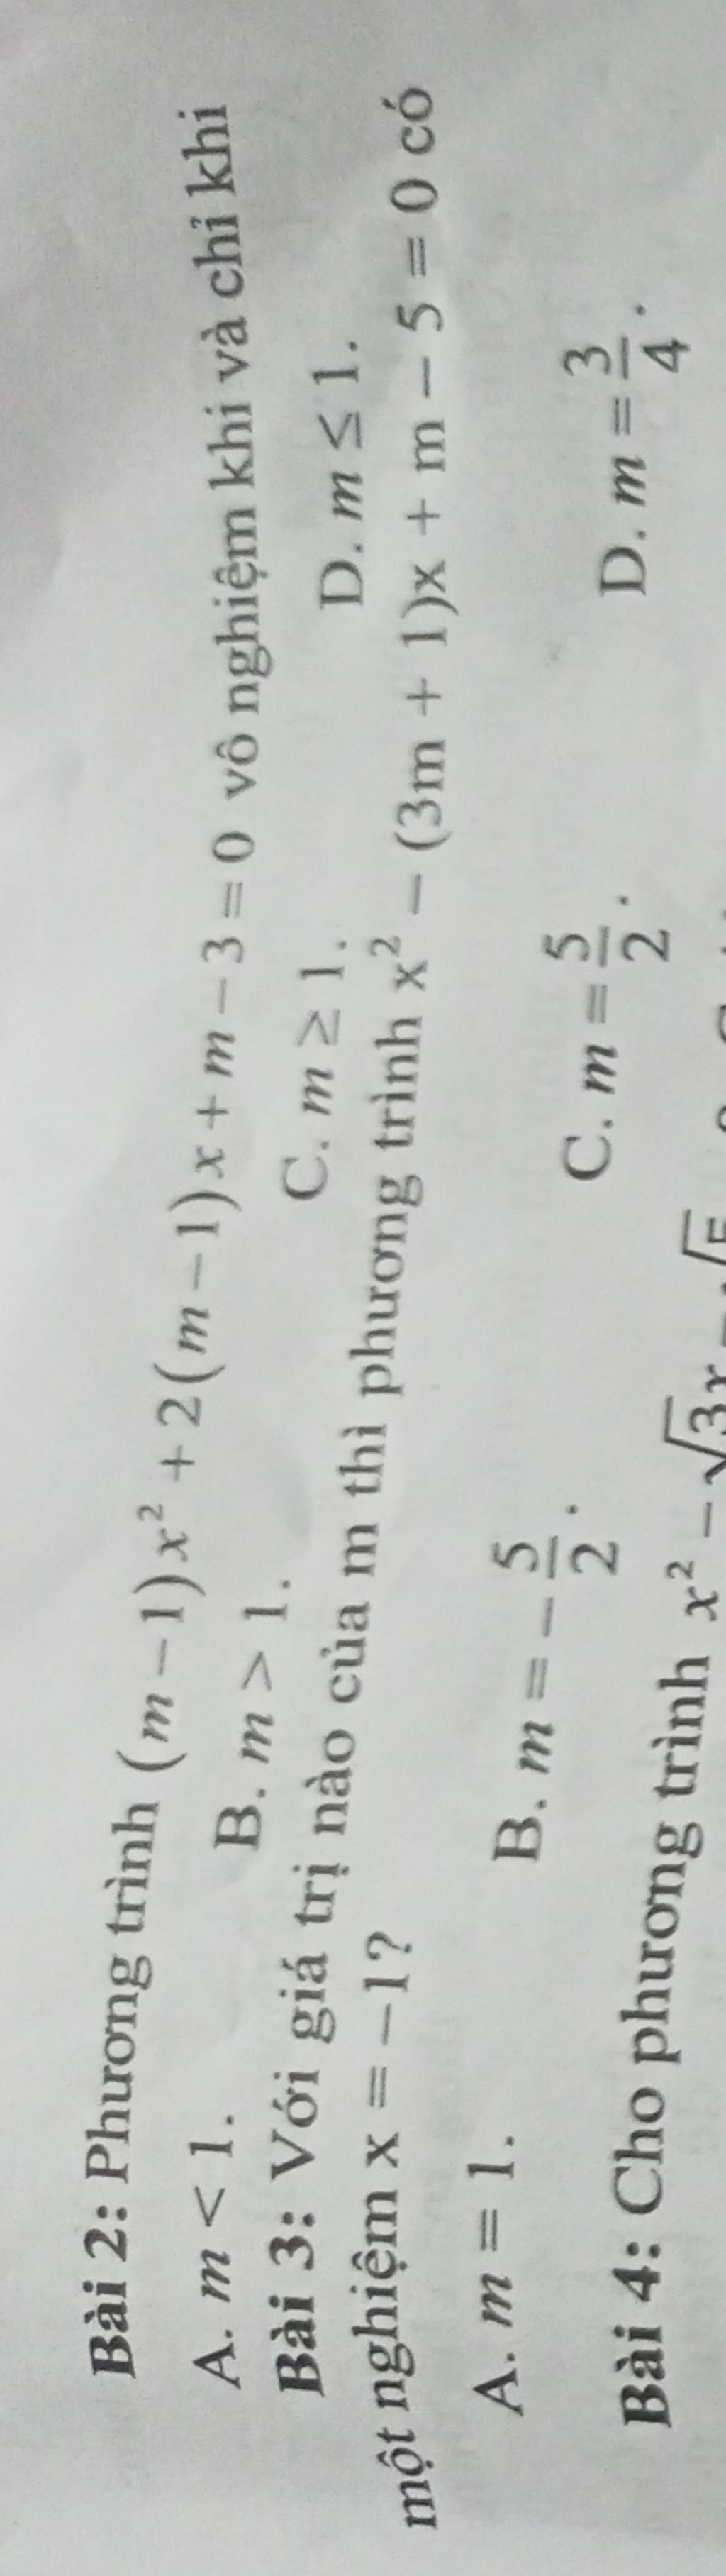 Bài 2: Phương trình (m − 1)x² + 2(m − 1)x + m − 3 = 0 vô nghiệm khi và chỉ khi
A. m < 1. B. m > 1. C. m ≥ 1. D. m ≤ 1.
Bài 3: Với giá trị nào của m thì phương trình x² − (3m + 1)x + m − 5 = 0 có
một nghiệm x = −1?
A. m = 1. B. m = −5/2. C. m = 5/2. D. m = 3/4.
Bài 4: Cho phương trình x² − √3x −